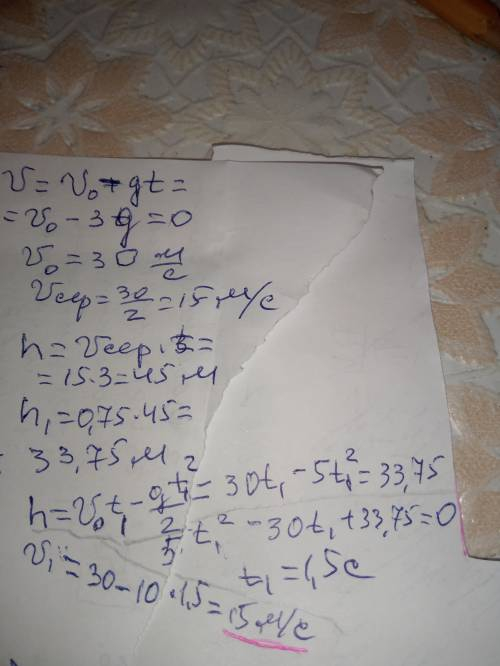 V = V₀ - gt =
= V₀ - 3g = 0
V₀ = 30 м/с
Vсер = 30/2 = 15 м/с
h = Vсер · t =
= 15·3 = 45 м
h₁ = 0,75·45 =
= 33,75 м
h = V₀t₁ - gt₁²/2 = 30t₁ - 5t₁² = 33,75
5·t₁² - 30t₁ + 33,75 = 0
t₁ = 1,5с
V₁ = 30 - 10·1,5 = 15 м/с